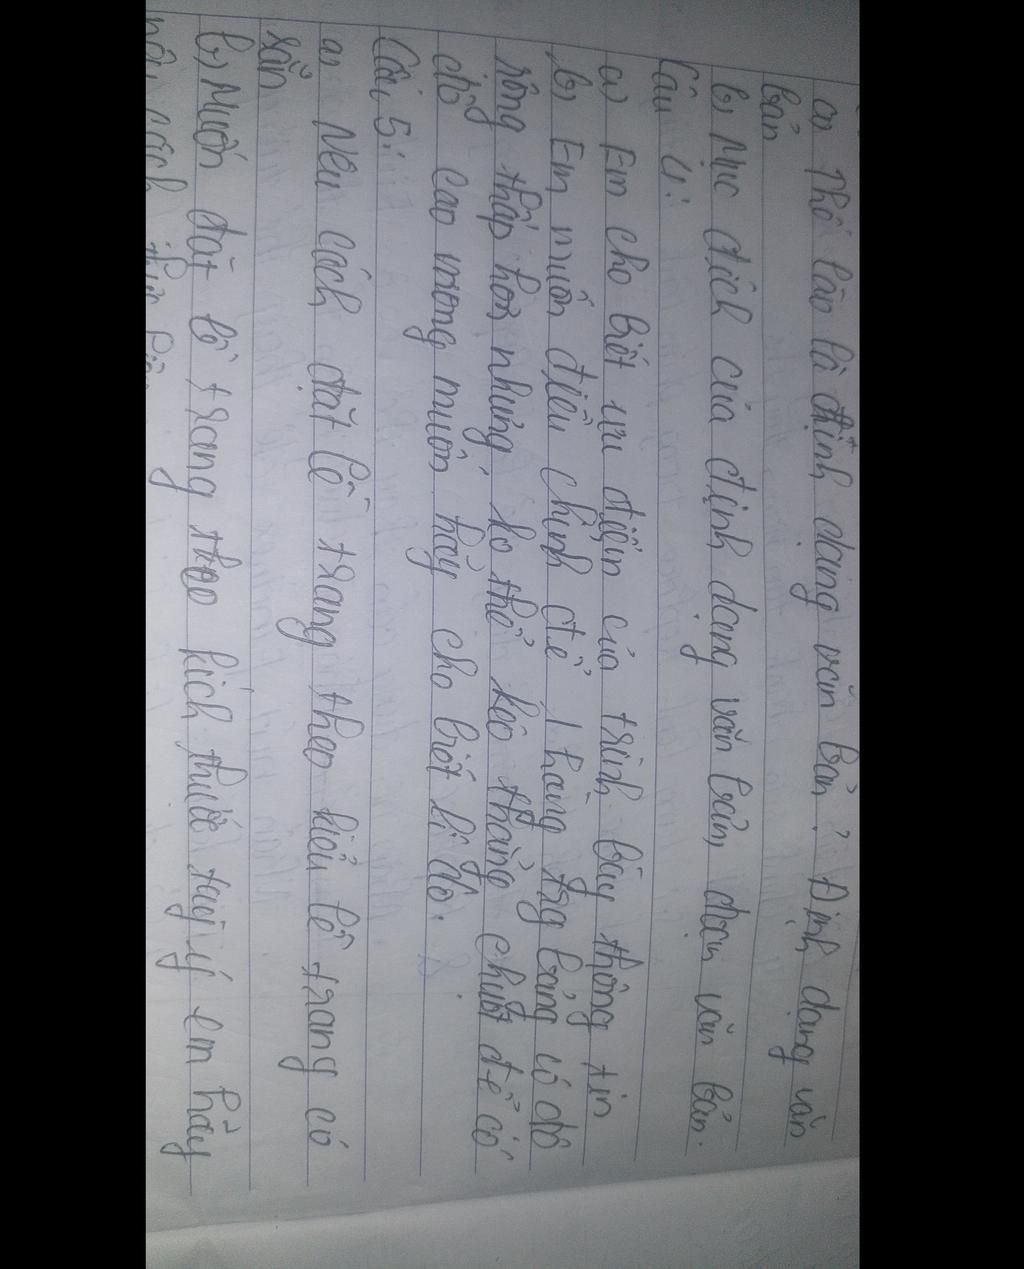 a) Thế lào là định dạng văn bản? Định dạng văn
bản
b) Mục đích của định dạng văn bản, đoạn văn bản.
Câu 4:
a) Em cho biết ưu điểm của trình bày thông tin
b) Em muốn điều chỉnh để 1 hàng trg bảng có độ
rộng thấp hơn nhưng ko thể kéo thả chuột để có
độ cao mong muốn hãy cho biết lí do.
Câu 5:
a) Nêu cách đặt lề trang theo kiểu lề trang có
sẵn
b) Muốn đặt lề trang theo kích thước tuỳ ý em hãy
nêu cách